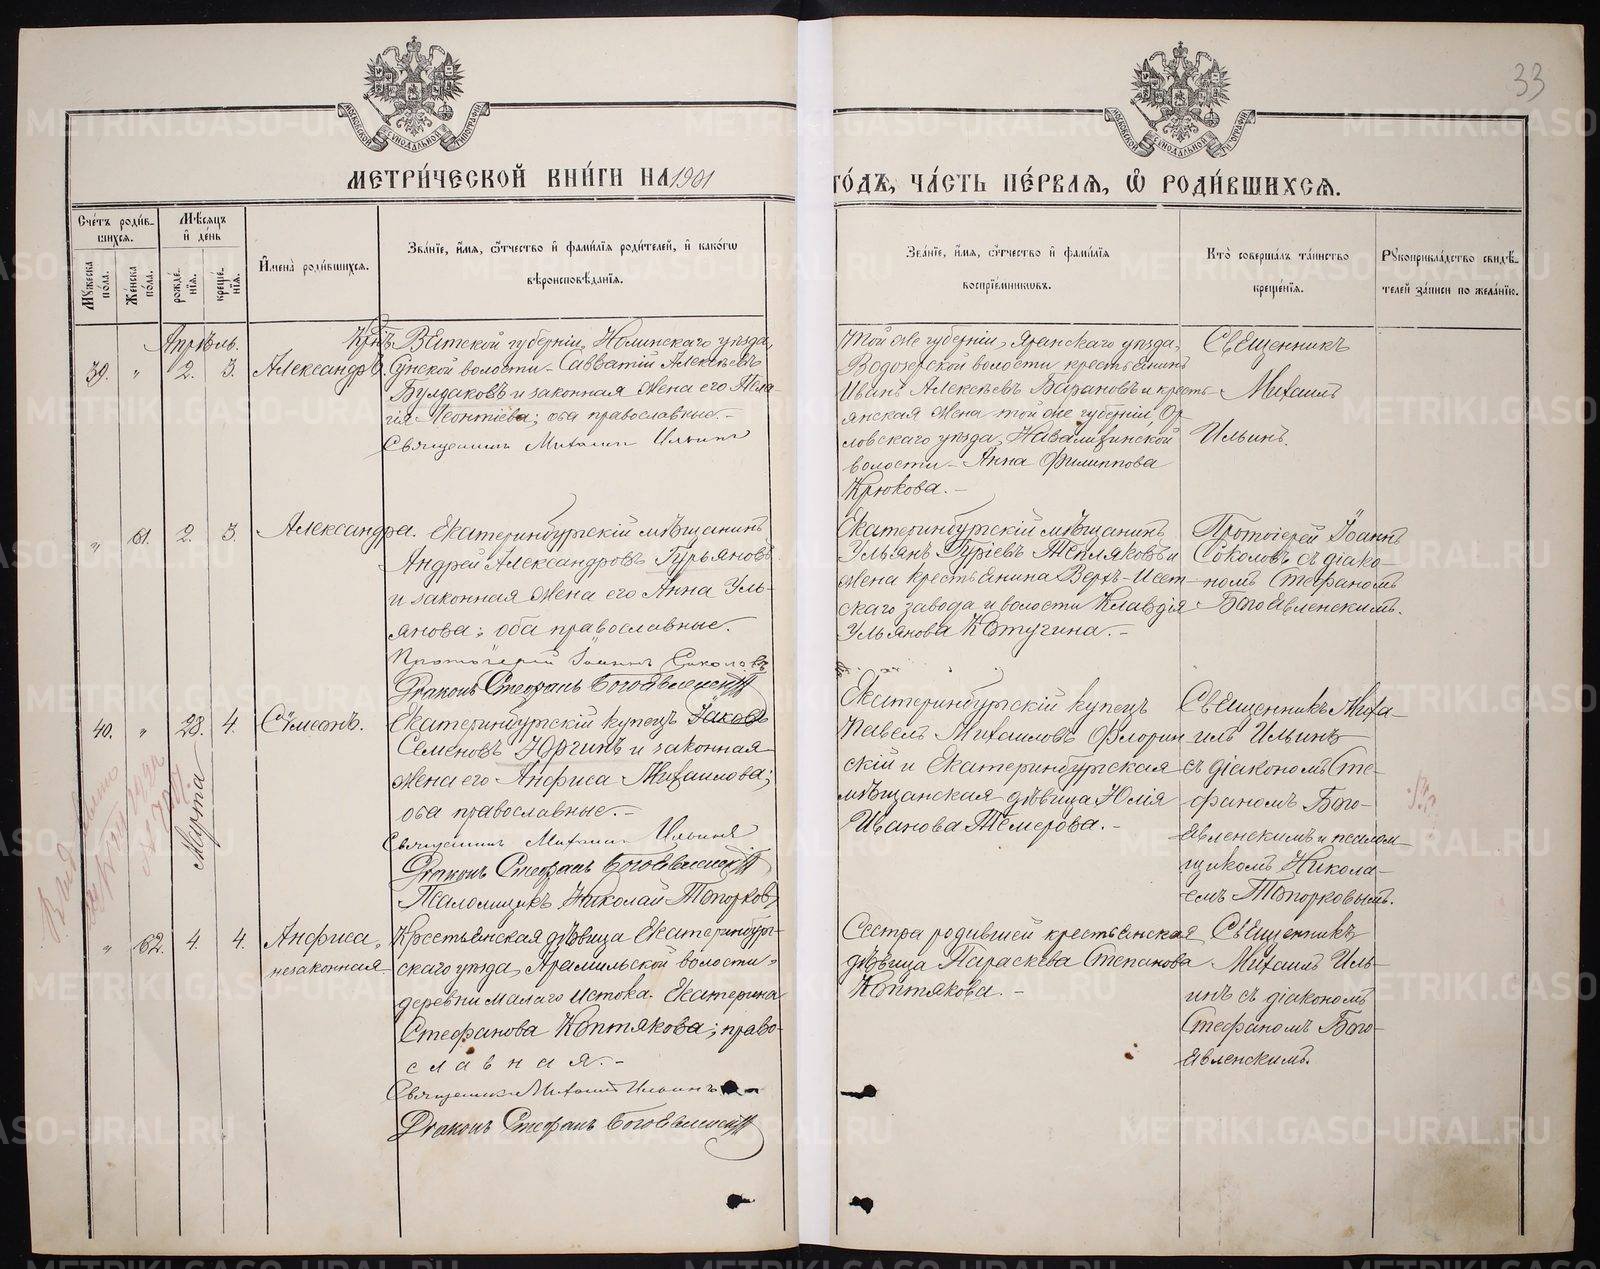 33
МЕТРИ́ЧЕСКОЙ КНИ́ГИ НА 1901
ГО́ДЪ, ЧА́СТЬ ПЕ́РВАЯ, Ѽ РОДИ́ВШИХСЯ.
Сче́тъ роди́в-
шихся.
Мѣ́сяцъ
и҆ де́нь
И҆мена̀ роди́вшихся.
Зва́нїе, и҆́мя, ѻ҆́тчество и҆ фами́лїя роди́телей, и҆ како́гѡ
вѣроисповѣ́данїя.
Му́жеска
по́ла.
Же́нска
по́ла.
рожде́-
нїя.
креще́-
нїя.
Зва́нїе, и҆́мя, ѻ҆́тчество и҆ фами́лїя
воспрїе́мниковъ.
Кто̀ соверша́лъ та́инство
креще́нїя.
Рꙋкоприкла́дство свидѣ́-
телей за́писи по жела́нїю.
Апрѣль.
39. " 2. 3. Александръ.
Крнъ Вятской губерніи, Нолинскаго уѣзда,
Сунской волости - Савватій Алексѣевъ
Булдаковъ и законная жена его Пела-
гія Леонтіева; оба православные. -
Священникъ Михаилъ Ильинъ
Той же губерніи, Яранскаго уѣзда,
Водозерской волости крестьянинъ
Иванъ Алексѣевъ Барановъ и кресть-
янская жена той же губерніи, Ор-
ловскаго уѣзда,
волости - Анна Филиппова
Крюкова. -
Священникъ
Михаилъ
Ильинъ.
" 61. 2. 3. Александра.
Екатеринбургскій мѣщанинъ
Андрей Александровъ Гурьяновъ
и законная жена его Анна Уль-
янова; оба православные.
Протоіерей Іоаннъ Соколовъ
Діаконъ Стефанъ Богоявленскій
Екатеринбургскій мѣщанинъ
Ульянъ Гуріевъ Тепляковъ и
жена крестьянина Верхъ-Исет-
скаго завода и волости Клавдія
Ульянова Котугина. -
Протоіерей Іоаннъ
Соколовъ съ діако-
номъ Стефаномъ
Богоявленскимъ.
40. " 28. 4. Сѵмеонъ.
Марта
Екатеринбургскій купецъ Іаковъ
Семеновъ Юргинъ и законная
жена его Анфиса Михаилова;
оба православные. -
Священникъ Михаилъ Ильинъ
Діаконъ Стефанъ Богоявленскій
Псаломщикъ Николай Топорковъ
Екатеринбургскій купецъ
Павелъ Михаиловъ Флорин-
скій и Екатеринбургская
мѣщанская дѣвица Юлія
Иванова Темерова. -
Священникъ Миха-
илъ Ильинъ
съ діакономъ Сте-
фаномъ Бого-
явленскимъ и псалом-
щикомъ Никола-
емъ Топорковымъ.
" 62. 4. 4. Анфиса,
незаконная
Крестьянская дѣвица Екатеринбург-
скаго уѣзда, Арамильской волости,
деревни Малаго Истока. Екатерина
Стефанова Коптякова; право-
славная. -
Священникъ Михаилъ Ильинъ
Діаконъ Стефанъ Богоявленскій
Сестра родившей крестьянская
дѣвица Параскева Степанова
Коптякова. -
Священникъ
Михаилъ Иль-
инъ съ діакономъ
Стефаномъ Бого-
явленскимъ.
METRIKI.GASO-URAL.RU